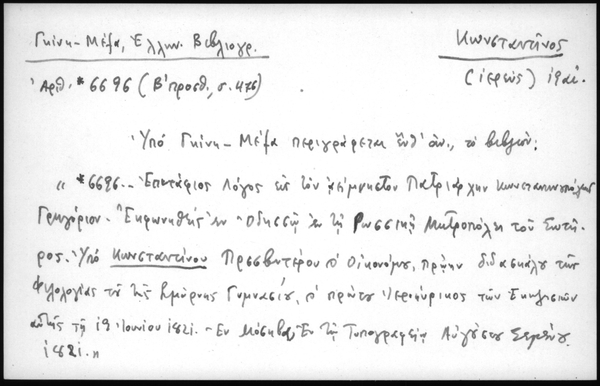 Γκίνη - Μέξα, Ἑλλην. Βιβλιογρ.
Κωνσταντῖνος
Ἀριθ. *6696 (Β' προσθ., σ. 476)
(ἱερεύς) 1821.
Ὑπό Γκίνη - Μέξα περιγράφεται ἔνθ' ἀν., τό βιβλίον:
" *6696.- Ἐπιτάφιος Λόγος εἰς τόν ἀείμνηστον Πατριάρχην Κωνσταντινουπόλεως
Γρηγόριον. Ἐκφωνηθείς ἐν Ὀδησσῷ ἐν τῇ Ρωσσικῇ Μητροπόλει τοῦ Σωτῆ-
ρος. Ὑπό Κωνσταντίνου Πρεσβυτέρου κ' Οἰκονόμου, πρῴην διδασκάλου τῆς
φιλολογίας τοῦ τῆς Σμύρνης Γυμνασίου, κ' πρώτου Ἱεροκήρυκος τῶν Ἐκκλησιῶν
αὐτῆς τῇ 19 Ἰουνίου 1821. - Ἐν Μόσχᾳ Ἐν τῇ Τυπογραφίᾳ Αὐγούστου Σεμένου
1821."